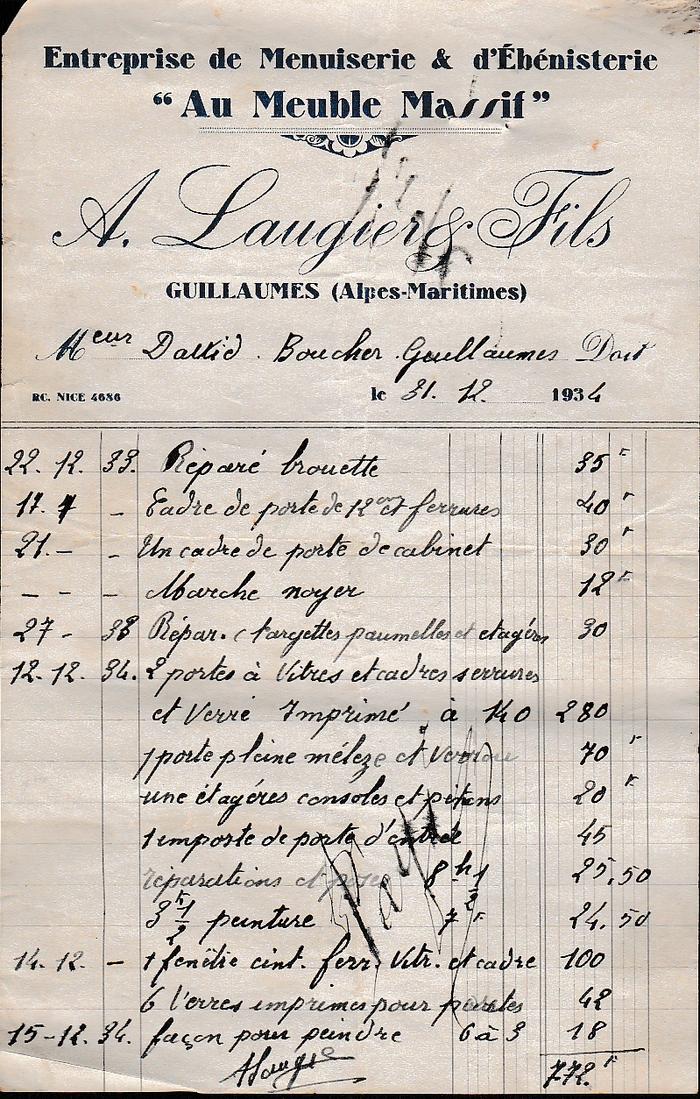 Entreprise de Menuiserie & d'Ébénisterie
“Au Meuble Massif”
A. Laugier & Fils
GUILLAUMES (Alpes-Maritimes)
Meur David. Boucher Guillaumes Doit
RC. NICE 4686
le 31. 12. 1934
22. 12. 33. Réparé brouette 35 F
17. - Cadre de porte de 12 et ferrures 40 F
21. - - Un cadre de porte de cabinet 30 F
- - - Marche noyer 12 F
27 - 33 Répar. targettes paumelles et etagéres 30
12. 12. 34. 2 portes à Vitres et cadres serrures
et Verre Imprimé à 140 280
1 porte pleine méleze et Verrou 70 F
une étagéres consoles et pitons 20 F
1 importe de porte d'entrée 45
réparations et pose 8 h 1/2 25,50
3 K 1/2 peinture 7 F 24.50
14. 12. - 1 fenêtre cint. ferr. Vitr. et cadre 100
6 Verres imprimes pour portes 42
15-12. 34. façon pour peindre 6 à 3 18
772. F
ALaugier
Payé